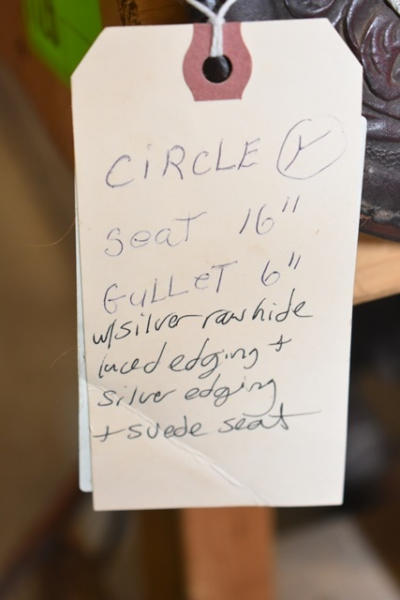 CiRCLE Y
Seat 16"
GuLLeT 6"
w/silver rawhide
laced edging +
silver edging
+ suede seat